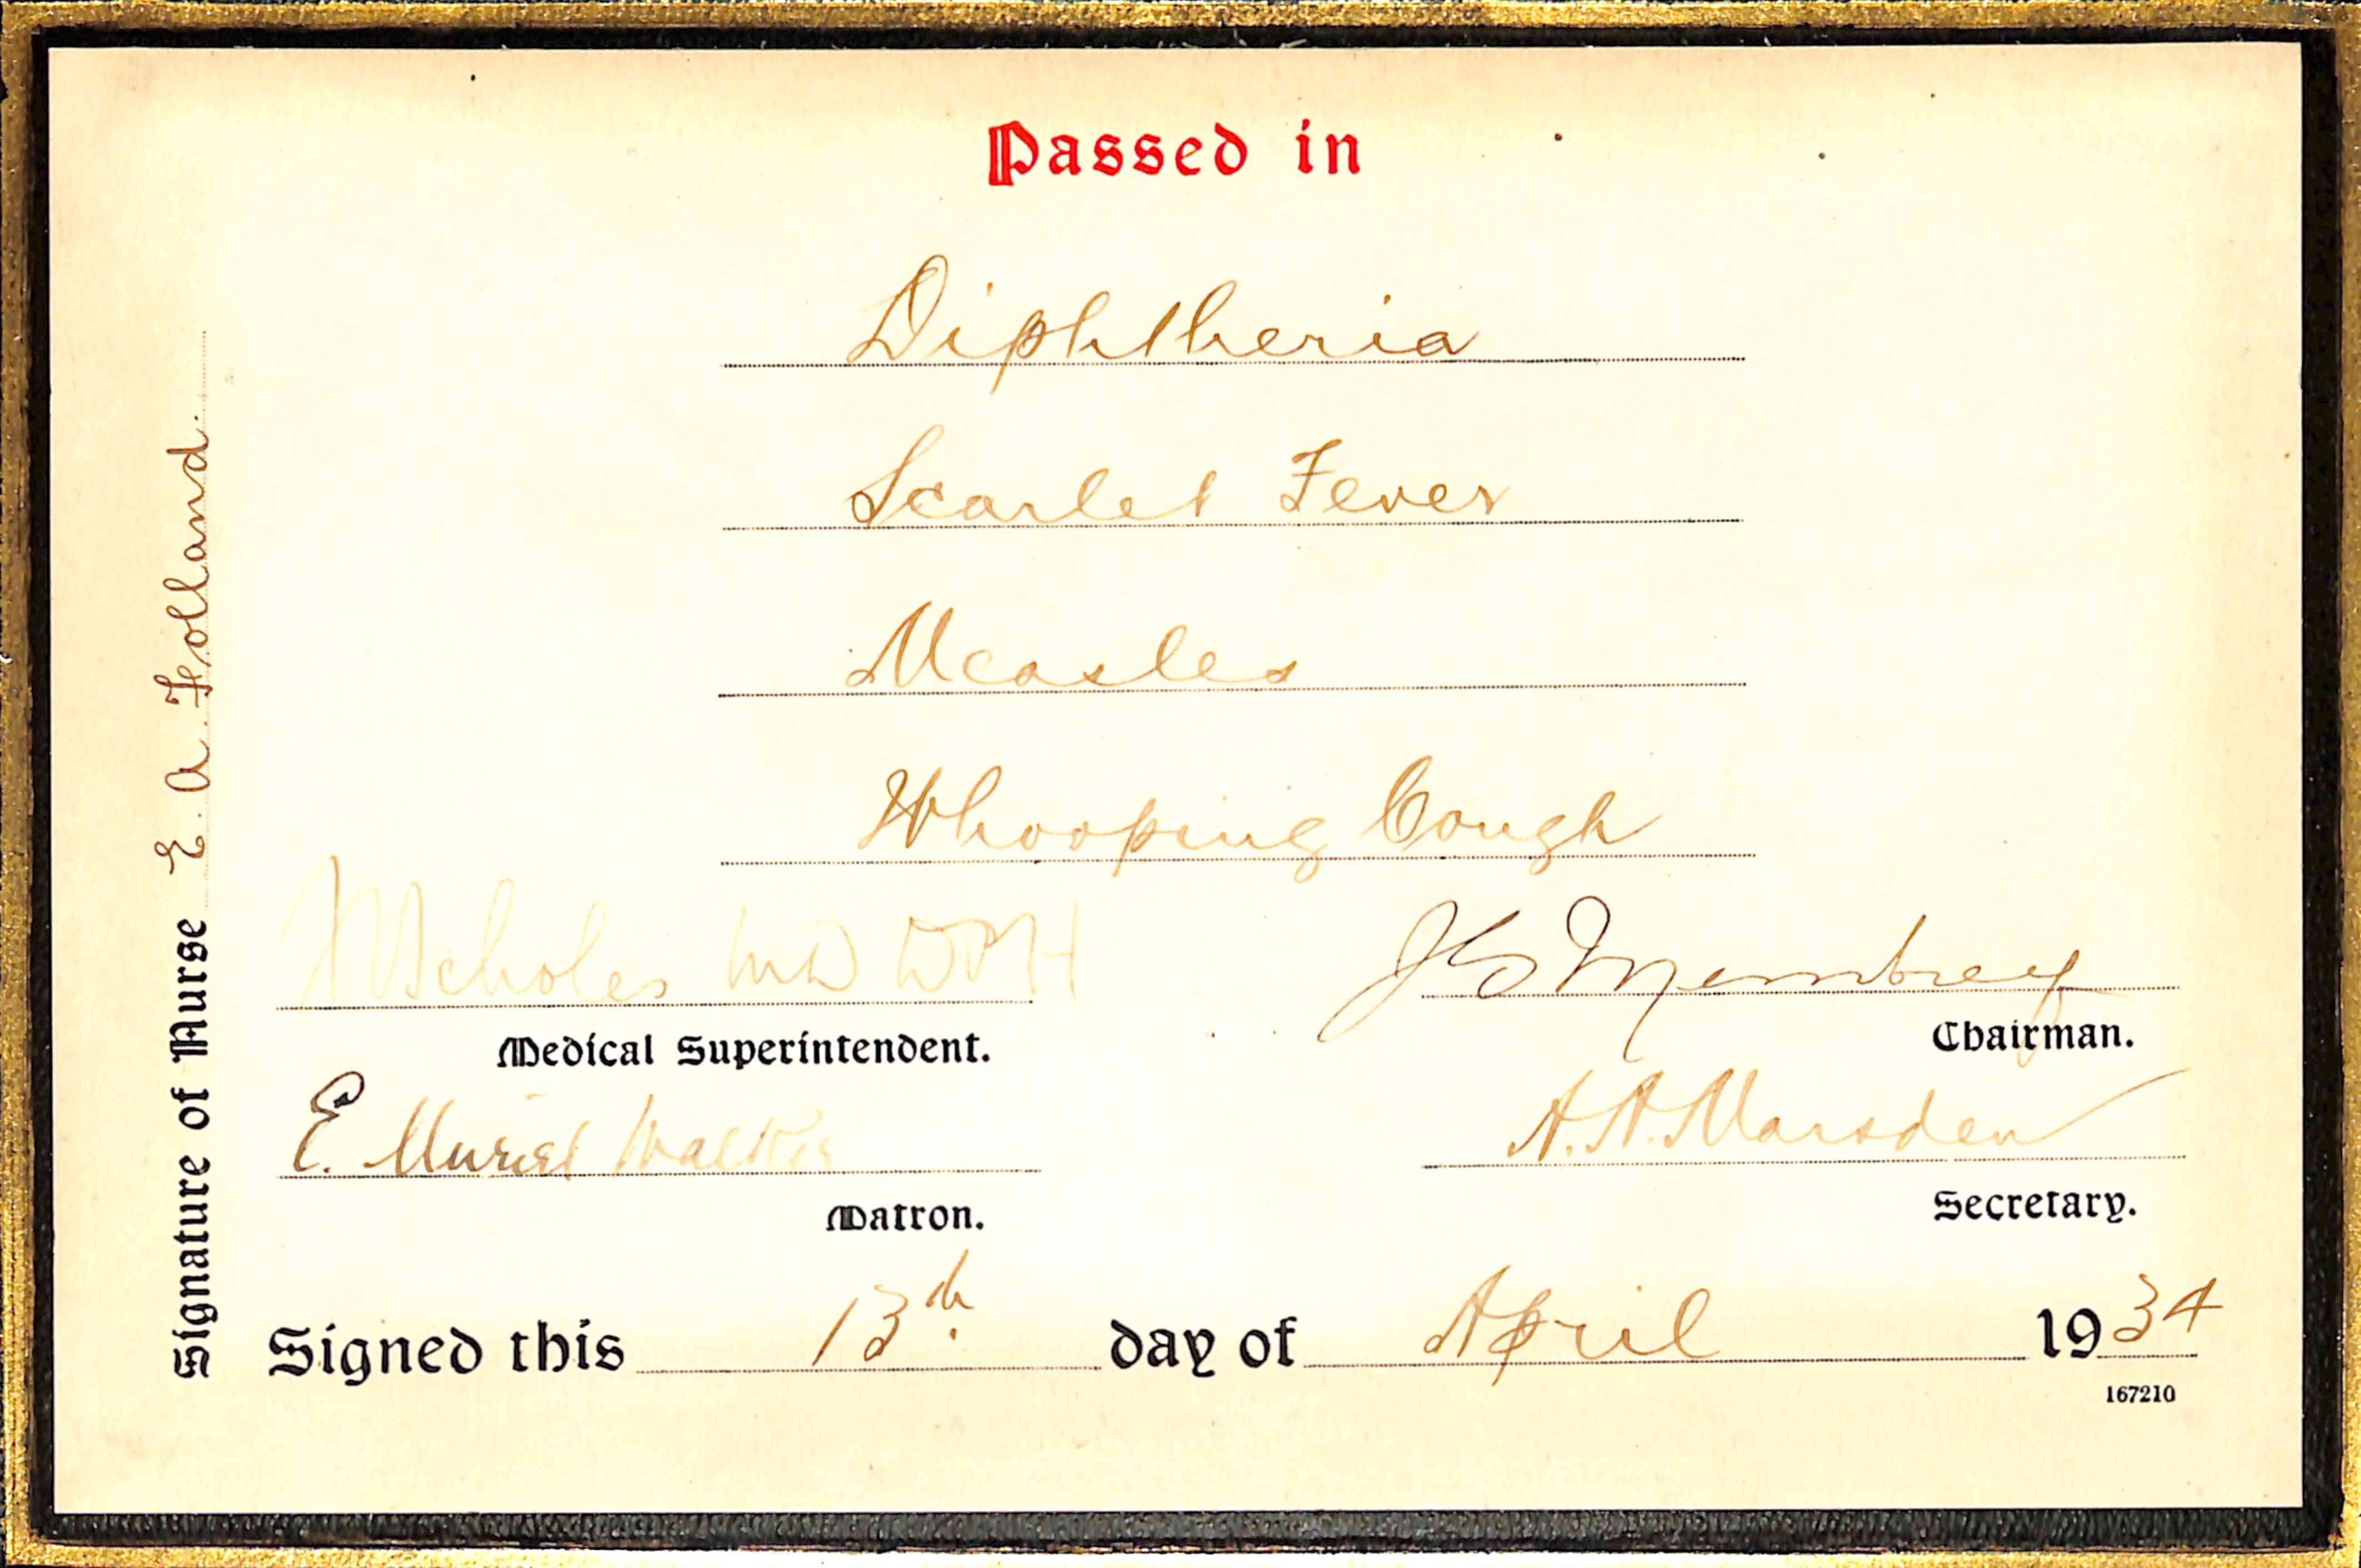 Passed in
Diphtheria
Scarlet Fever
Measles
Whooping Cough
Scholes MD DPH
Medical Superintendent.
Chairman.
E. Muriel Walker
Matron.
A. A. Marsden
Secretary.
Signed this 13th. day of April 1934
167210
Signature of Nurse E. A. Folland.